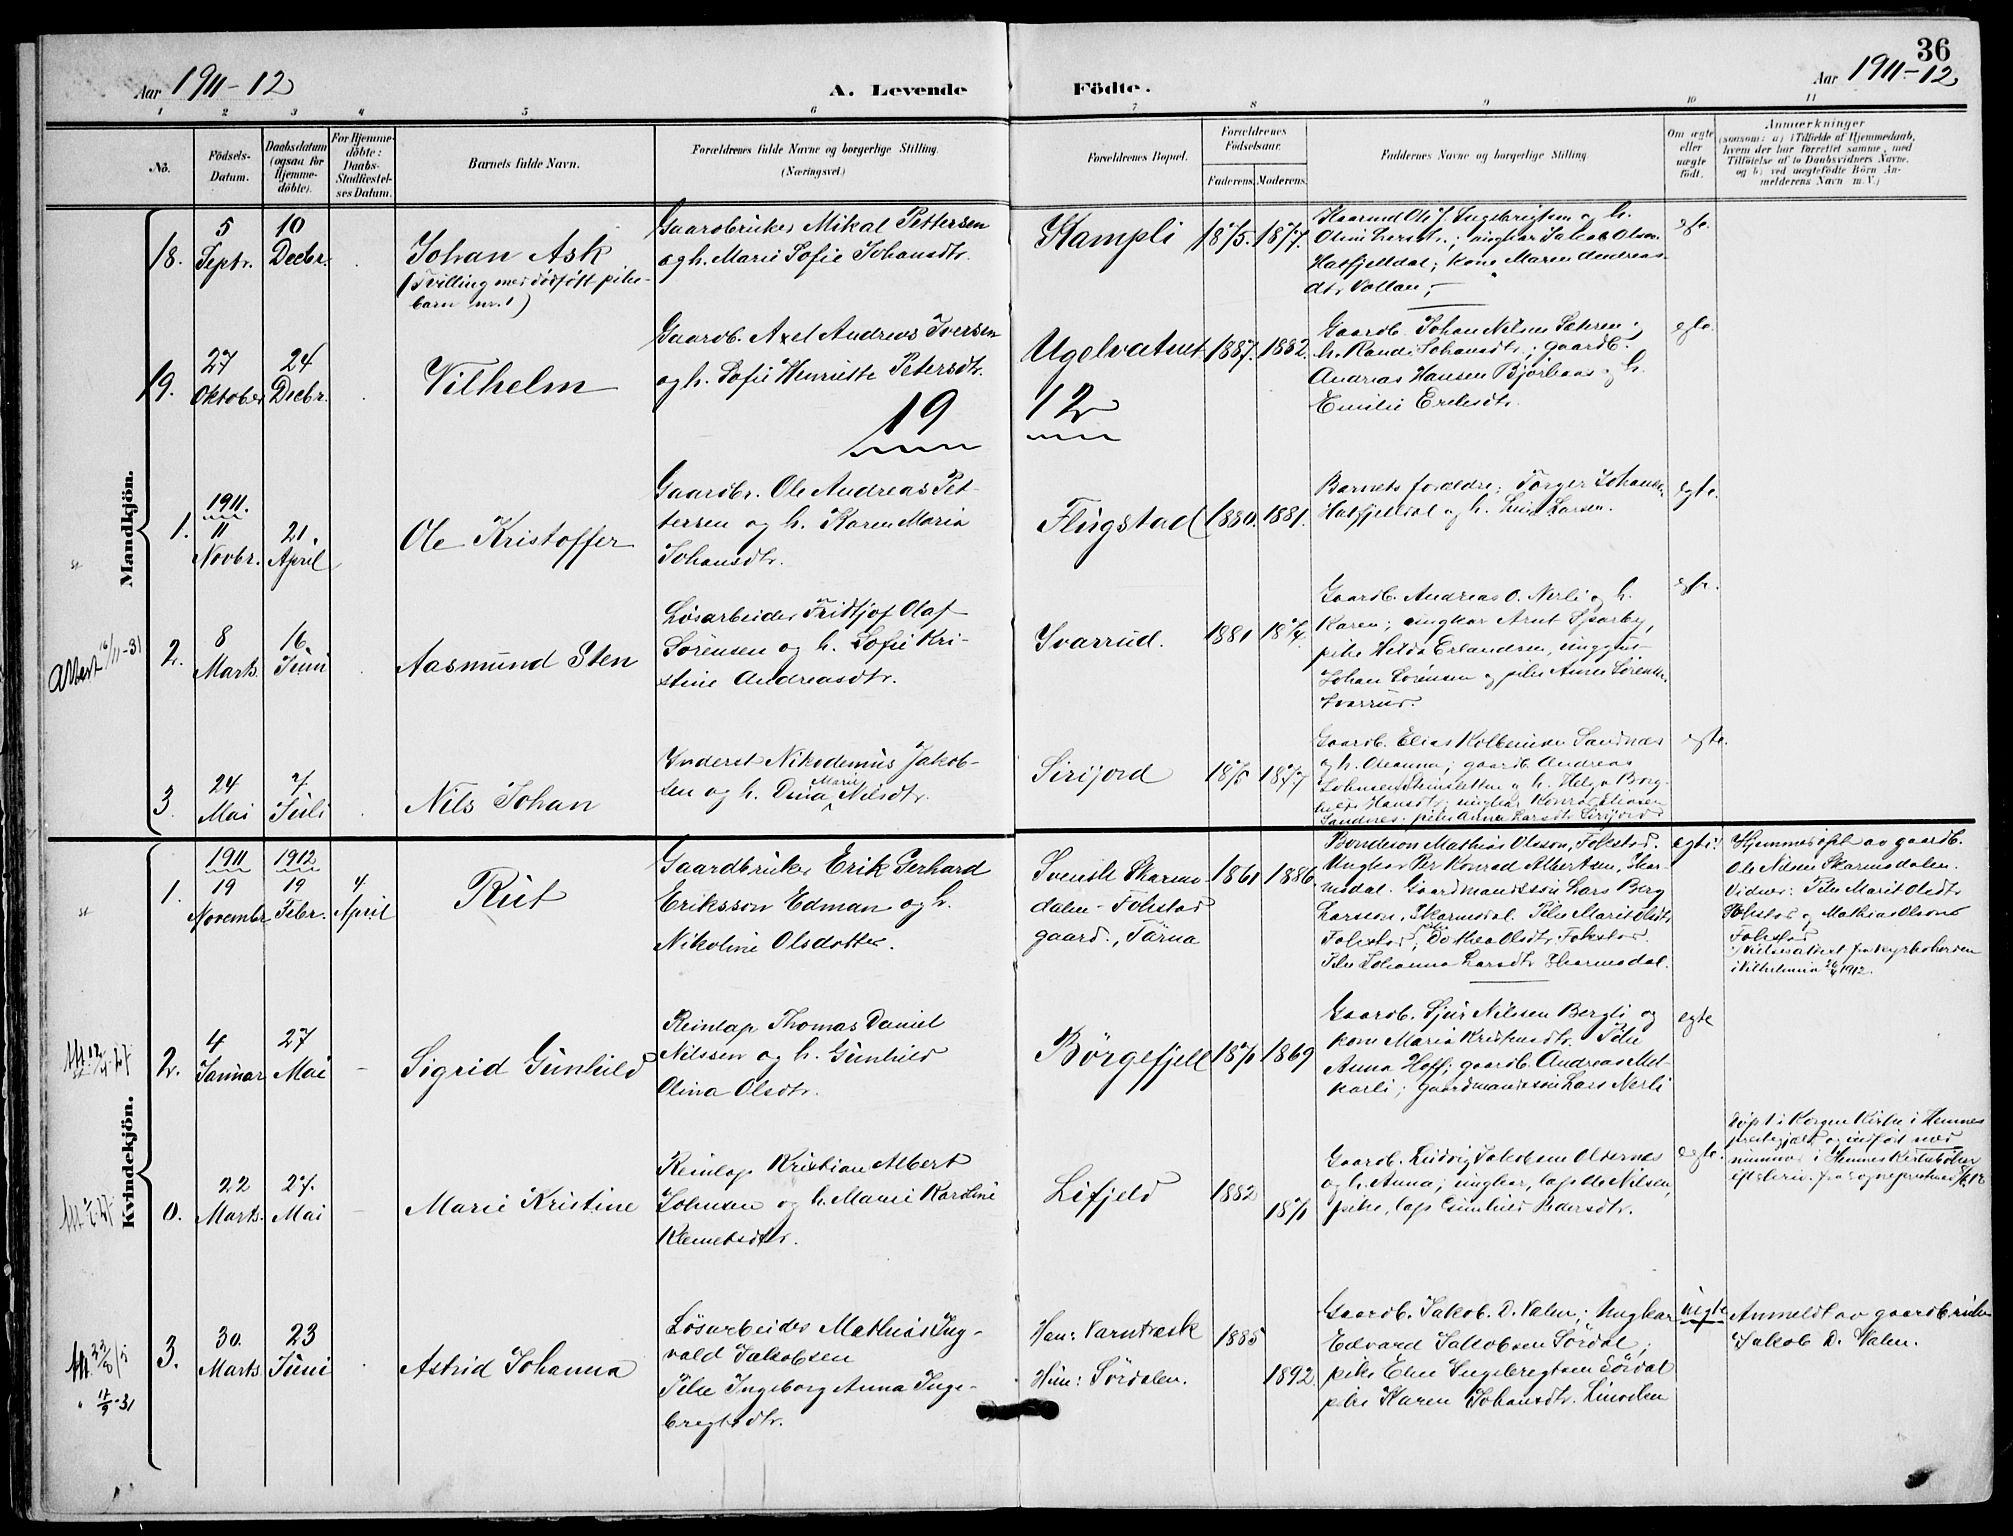 36
Aar 1911-12
A. Levende
Födte.
Aar 1911-12
1 2 3 4 5 6 7 8 9 10 11
No.
Födsels-
Datum.
Daabsdatum
(ogsaa for
Hjemme-
döbte).
For Hjemme-
döbte:
Daabs-
Stadfæstel-
ses Datum.
Barnets fulde Navn.
Forældrenes fulde Navne og borgerlige Stilling.
(Næringsvei.)
Forældrenes Bopæl.
Forældrenes
Födselsaar.
Faderens. Moderens.
Faddernes Navne og borgerlige Stilling
Om ægte
eller
uægte
födt.
Anmærkninger
(saasom: a) i Tilfælde af Hjemmedaab,
hvem der har forrettet samme, med
Tilföielse af to Daabsvidners Navne.
og b) ved uægtefödte Börn An-
melderens Navn m. V.)
Mandkjön.
18.
5
Septr.
10
Decbr.
Johan Ask
(Tvilling med dødfødt pike-
barn nr. 1)
Gaardbruker Mikal Pettersen
og h. Marie Sofie Johansdtr.
Kampli
1875. 1877.
Hatfjelldal; kone Maren Andreas-
dtr. Vollan,
19.
27
Oktober
24
Decbr.
Vilhelm
Gaardb. Axel Andreas Iversen
og h. Sofie Henriette Petersdtr.
19
12
Ugelvatnet
1887. 1882.
Gaardb. Johan Nilsen Sæteren og
h. Randi Johansdtr.; gaardb.
Andreas Hansen Bjørkaas og h.
Emilie Eriksdtr.
1.
1911.
11
Novbr.
21.
April
Ole Kristoffer
Gaardbr. Ole Andreas Pet-
tersen og h. Karen Maria
Johansdtr.
Flugstad
1880. 1881.
Barnets forældre; Torger Johansen
Hatfjelldal og h. Lina Larsen.
egte.
Albert 16/11-31
2.
8
Marts
16
Juni
Aasmund Sten
Løsarbeider Fridtjof Olaf
Sørensen og h. Sofie Kri-
stine Andreasdtr.
Svarrud.
1881 1874.
Gaardb. Andreas O. Nerli og h.
Karen; ungkar Arnt
pike Helda Erlandsen, unggut
Johan Sørensen og pike Anna Sørensen
Svarrud.
3.
24
Mai
7.
Juli
Nils Johan
Inderst Nikodemus Jakob-
sen og h. Dina Marie Nilsdtr.
Sirijord
1875 1877
Gaardb. Elias Kolbeinsen Sandnæs
og h. Oleanna; gaardb. Andreas
egte.
Kvindekjön.
1.
1911
19
Novembr.
1912
19
Febr.
7.
April
Rut
Gaardbruker Erik Gerhard
Eriksson Edman og h.
Nikoline Olsdotter.
Svensk Skarmo-
dalen - Folestad
gaard., Tärna
1861 1886
Bondeson Mathias Olsson, Folestad.
Ungkar Per Konrad Albertsen, Skar-
modal. Gaardmandssøn Lars Berg
Larsson, Skarmodal. Pike Marit Olsdtr.
Folestad, pike Dothea Olsdtr. Folestad.
Pike Johanna Larsdtr. Skarmodal.
Hjemmedøpt av gaardb.
Ole Nilsen Skarmodalen.
Vidner: Pike Marit Olsdtr
Folestad og Mathias Olsson
Folestad
2.
4
Januar
27
Mai
-
Sigrid Gunhild
Reinlap Thomas Daniel
Nilssen og h. Gunhild
Olina Olsdtr.
Børgefjell
1871 1869
Gaardb. Sjur Nilsen Bergli og
kone Maria Kristiansdtr. Pike
Anna Hoff; gaardb. Andreas Mel-
karli; gaardmandssøn Lars Nerli
egte
0.
22
Marts
27.
Mai
-
Marie Kristine
Reinlap Kristian Albert
Johnsen og h. Marie Karoline
Klemetsdtr.
Lifjeld
1882
1871
Gaardb. Ludvig Jakobsen Oldernes
og h. Anna; ungkar, lap Ole Nilsen,
pike, lap Gunhild Pedersdtr.
egte.
Døpt i Korgen Kirke i Hemnes
prestegjeld og indført med
nummer i Hemnes Kirkebøker
3.
30.
Marts
23
Juni
-
Astrid Johanna
Løsarbeider Mathias Ing-
vald Jakobsen
Pike Ingeborg Anna Inge-
bregtsdtr.
Han: Varntræsk
Hun: Sørdalen.
1885
1892
Gaardb. Jakob D. Valen; Ungkar
Edvard Jakobsen Sørdal;
pike Eline Ingebregtsen Sørdal
pike Karen Johansdtr.
uegte
Anmeldt av gaardbruker
Jakob D. Valen.